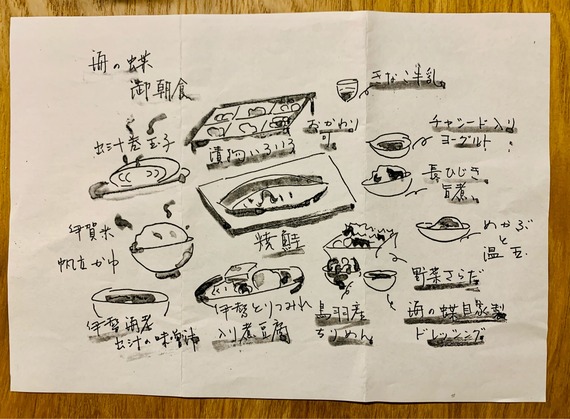 海の蝶
御朝食
きなこ牛乳
チャシード入り
ヨーグルト
おかわり
可
漬物いろいろ
出汁巻玉子
長ひじき
旨煮
焼鮭
めかぶ
と
温玉
伊賀米
帆立がゆ
野菜さらだ
伊勢海老
出汁の味噌汁
伊勢とりつみれ
入り煮豆腐
鳥羽産
ちりめん
海の蝶自家製
ドレッシング